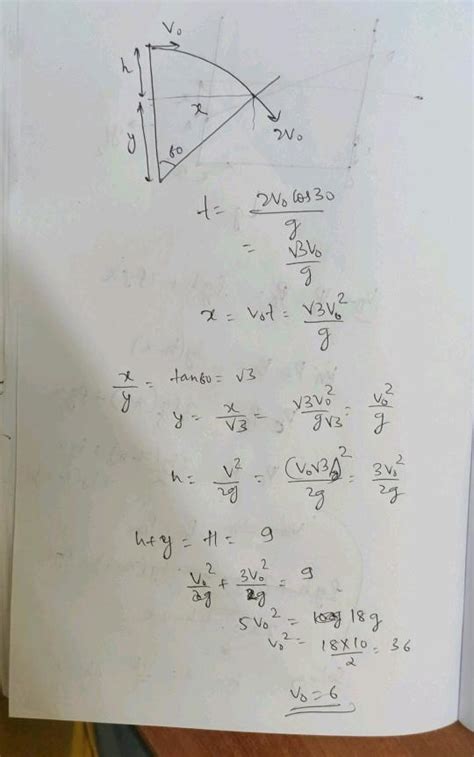 V₀
h
x
y
60
2V₀
t = 2V₀ cos30 / g
= √3V₀ / g
x = V₀t = √3V₀² / g
x/y = tan60 = √3
y = x/√3 = √3V₀² / g√3 = V₀² / g
h = V²/2g = (V₀√3)² / 2g = 3V₀² / 2g
h+y = H = 9
V₀²/g + 3V₀²/2g = 9
5V₀² = 18g
V₀² = 18×10 / 2 = 36
V₀ = 6